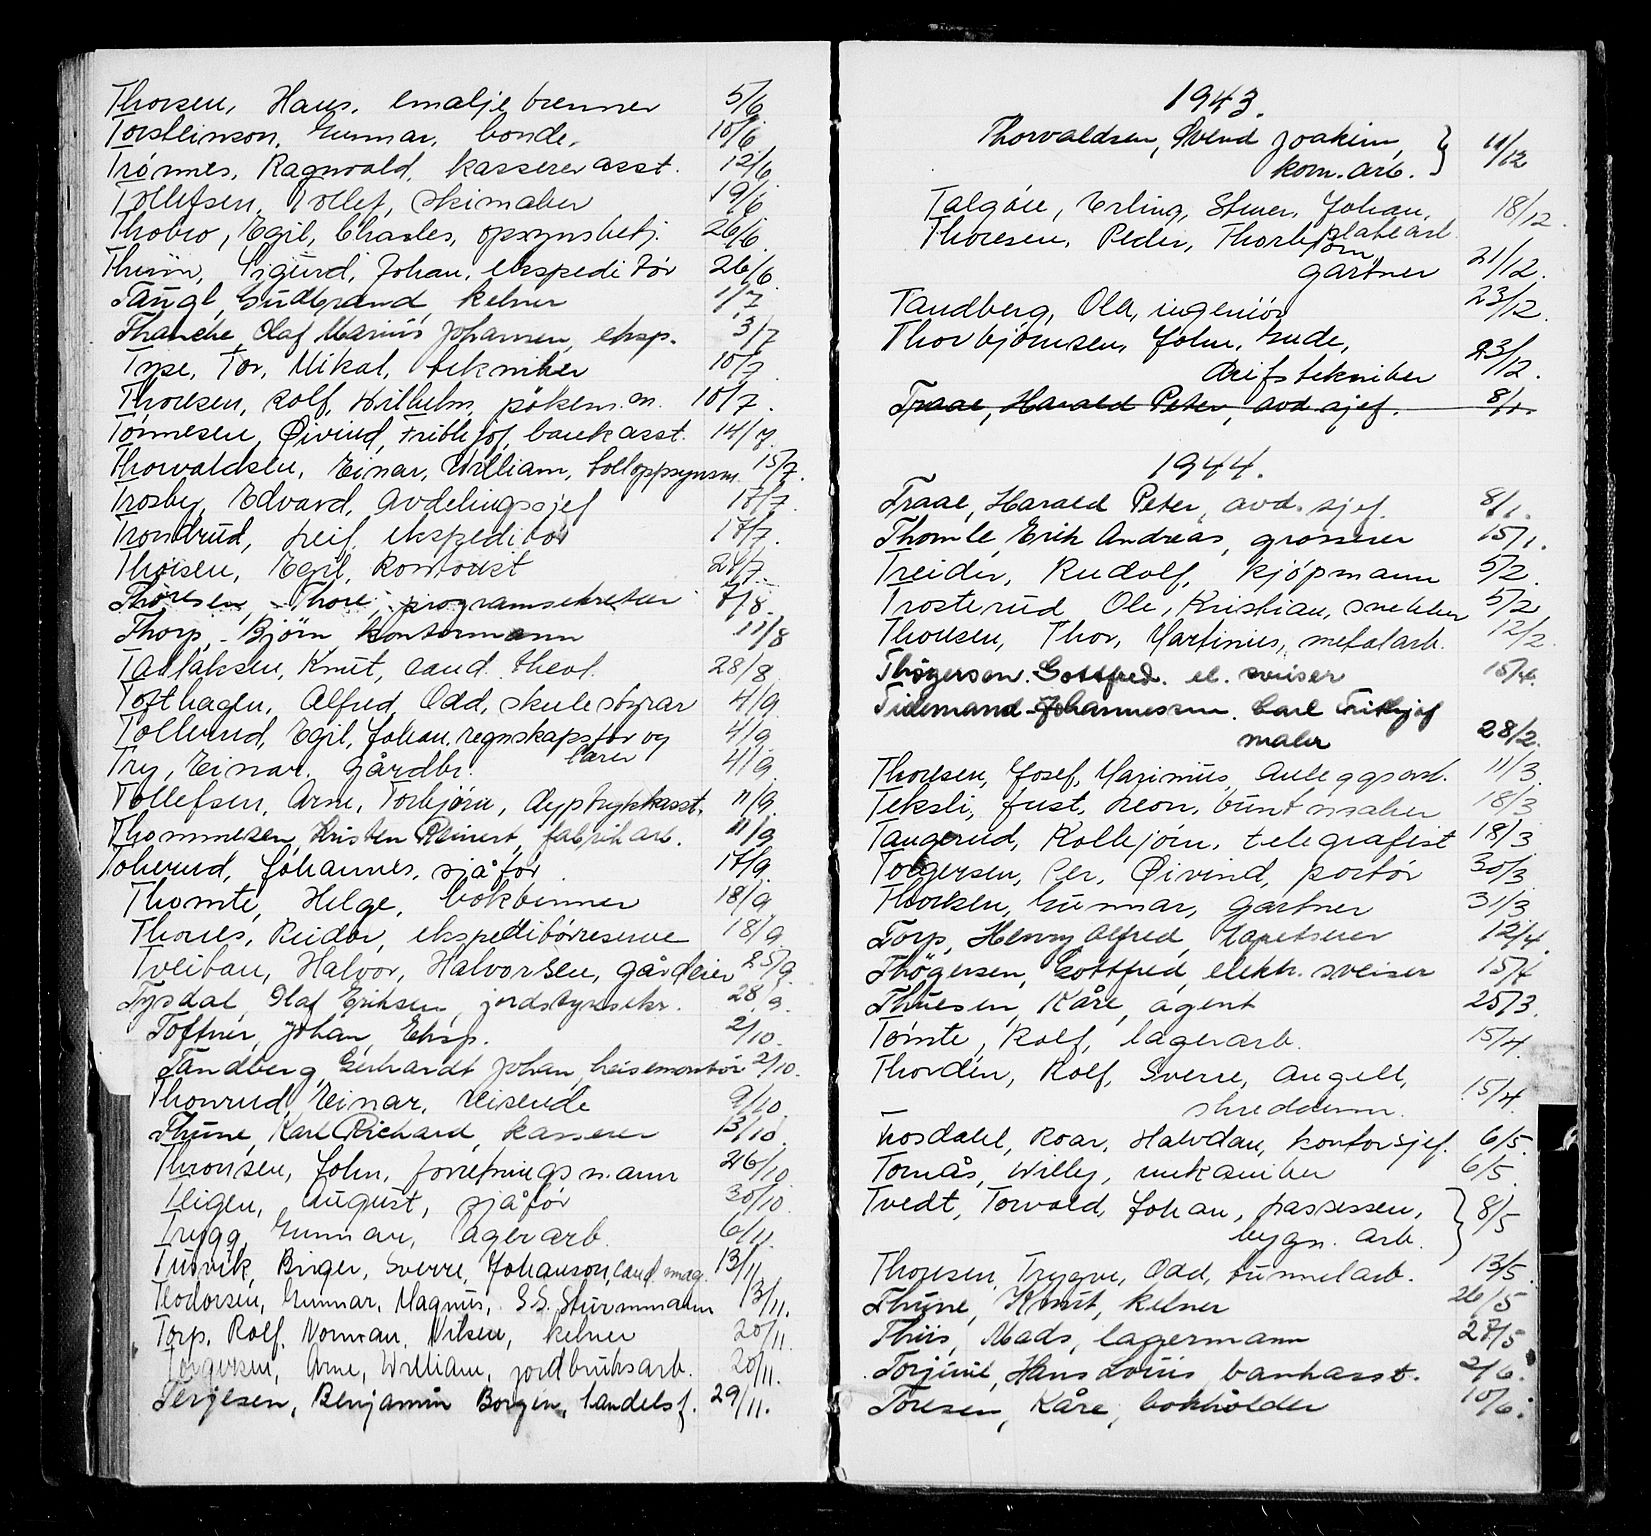 Thorsen, Hans, emaljebrenner 5/6
Torsteinson, Gunnar, bonde, 10/6
Trönnes, Ragnvald, kasserer asst. 12/6
Tollefsen, Tollef, skimaker 19/6
Thobro, Egil, Charles, opsynsbetj. 26/6
Sigurd, Johan, ekspeditör 26/6
Taugl, Gudbrand, kelner 1/7
Thanche, Olaf Marius Johansen, eksp. 3/7
Tyse, Tor, Mikal, tekniker 10/7
Thoresen, Rolf, Wilhelm, 10/7.
Tönnesen, Øivind, Frithjof, bankasst. 14/7
Thorvaldsen, Einar, William, tolloppsynsm. 15/7.
Trosby, Edvard, Avdelingssjef 17/7
Trondrud, Leif, ekspeditör 17/7.
Thoresen, Egil, Kontorist 24/7
Thoresen, Thore, programsekretær 7/8.
Thorp, Bjørn kontormann 11/8
Tallaksen, Knut, cand. theol. 28/8
Tofthagen, Alfred, Odd, skulestyrar 4/9
Tollerud, Egil, Johan, regnskapsför og 4/9
lærer
Try, Einar, Gårdbr. 4/9
Tollefsen, Arne, Torbjörn, dyptrykkasst. 11/9
Thommesen, Kristen Reinert, fabrikarb. 11/9
Tokerud, Johannes, sjåför 17/9.
Thomte, Helge, bokbinner 18/9
Thorres, Reidar, ekspeditörreserve 18/9.
Tveitan, Halvor, Halvorsen, gårdeier 25/9.
Tysdal, Olaf Eriksen, jordstyresekr. 28/9.
Toftner, Johan, Eksp. 2/10.
Tandberg, Gerhardt Johan, heisemontör 2/10.
Thonrud, Einar, reisende 9/10.
Thune, Karl Richard, kasserer 13/10.
Thronsen, John, forretningsmann 26/10.
August, sjåför 30/10.
Trygg, Gunnar, lagerarb. 6/11.
Tusvik, Birger, Sverre, Johanson, cand. mag. 13/11
Teodorsen, Gunnar, Magnus, S.S. Sturmmann 13/11.
Torp, Rolf, Norman, Nilsen, kelner 20/11.
Torgersen, Arne, William, jordbruksarb. 20/11.
Terjesen, Benjamin Borgen, landelsf. 29/11.
1943.
Thorvaldsen, Svend Joakim, 11/12
kom. arb.
Talgöie, Erling, Stener, Johan, 18/12.
platearb.
Thoresen, Peder, Thorbjörn,
gartner 21/12.
Tandberg, Ola, ingeniör 23/12.
Thorbjörnsen, John, Gude,
driftstekniker 23/12.
Traae, Harald Peter, avd. sjef. 8/1.
1944.
Traae, Harald Peter, avd. sjef. 8/1.
Thomle, Erik Andreas, grosserer 15/1.
Treider, Rudolf, Kjöpmann 5/2.
Trosterud, Ole, Kristian, snekker 5/2
Thoresen, Thor, Martinius, metalarb. 12/2.
Thøgersen Gottfred. el. sveiser 15/4.
Tidemand-Johannessen. Carl Frithjof
maler 28/2.
Thoresen, Josef, Marinius, Anleggsarb. 11/3.
Teksli, Just, Leon, buntmaker 18/3.
Tangerud, Kolbjörn, telegrafist 18/3
Torgersen, Per, Øivind, portör 30/3.
Thoresen, Gunnar, gartner 31/3
Torp, Henry Alfred, tapetserer 12/4.
Thögersen, Gottfred, elektr. sveiser 15/4
Thuesen, Kåre, agent 25/3.
Tömte, Rolf, lagerarb. 15/4.
Thordin, Rolf, Sverre, Angell,
skredderm. 15/4.
Trosdahl, Roar, Halvdan, kontorsjef. 6/5.
Tornås, Willy, mekaniker 6/5.
Tvedt, Torvald, Johan, Jassessen, 8/5
bygn. arb.
Thoresen, Trygve, Odd, tunnelarb. 13/5.
Thune, Knut, kelner 26/5
Thiis, Mads, lagermann 27/5
Torjusil, Hans Louis, bankasst. 2/6.
Toresen, Kåre, bokholder 10/6.